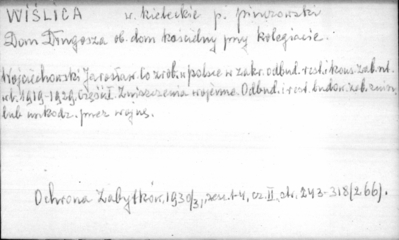 WIŚLICA w. kieleckie p. pinczowski
Dom Długosza ob. dom kościelny przy kolegiacie.
Wojciechowski Jarosław. Co zrob. w polsce w zakr. odbud. rest. i kons. zab. nt.
wl. 1919-1929. Część II. Zniszczenia wojenne. Odbud. i rest. budow. zab. zniszcz.
lub uszkodz. przez wojnę.
Ochrona Zabytków, 1930/31, zesz. 1-4, cz. II, str. 243-318 (266).